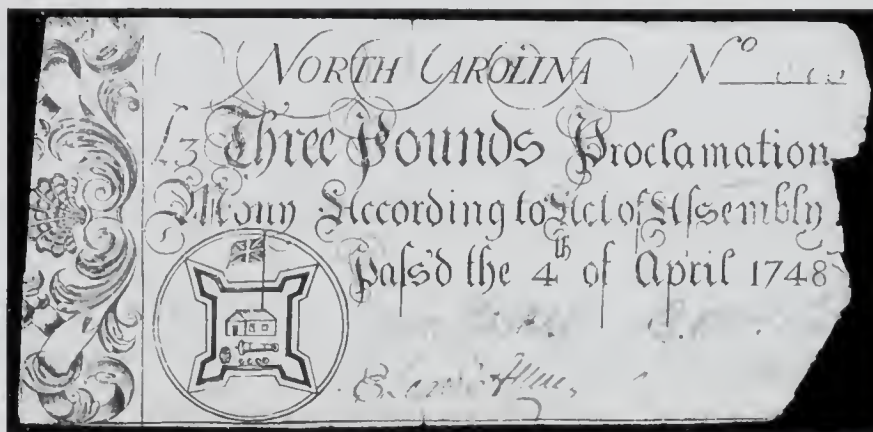 NORTH CAROLINA Nº
£3 Three Pounds Proclamation
Mony According to Act of Aſsembly
Paſs'd the 4th of April 1748